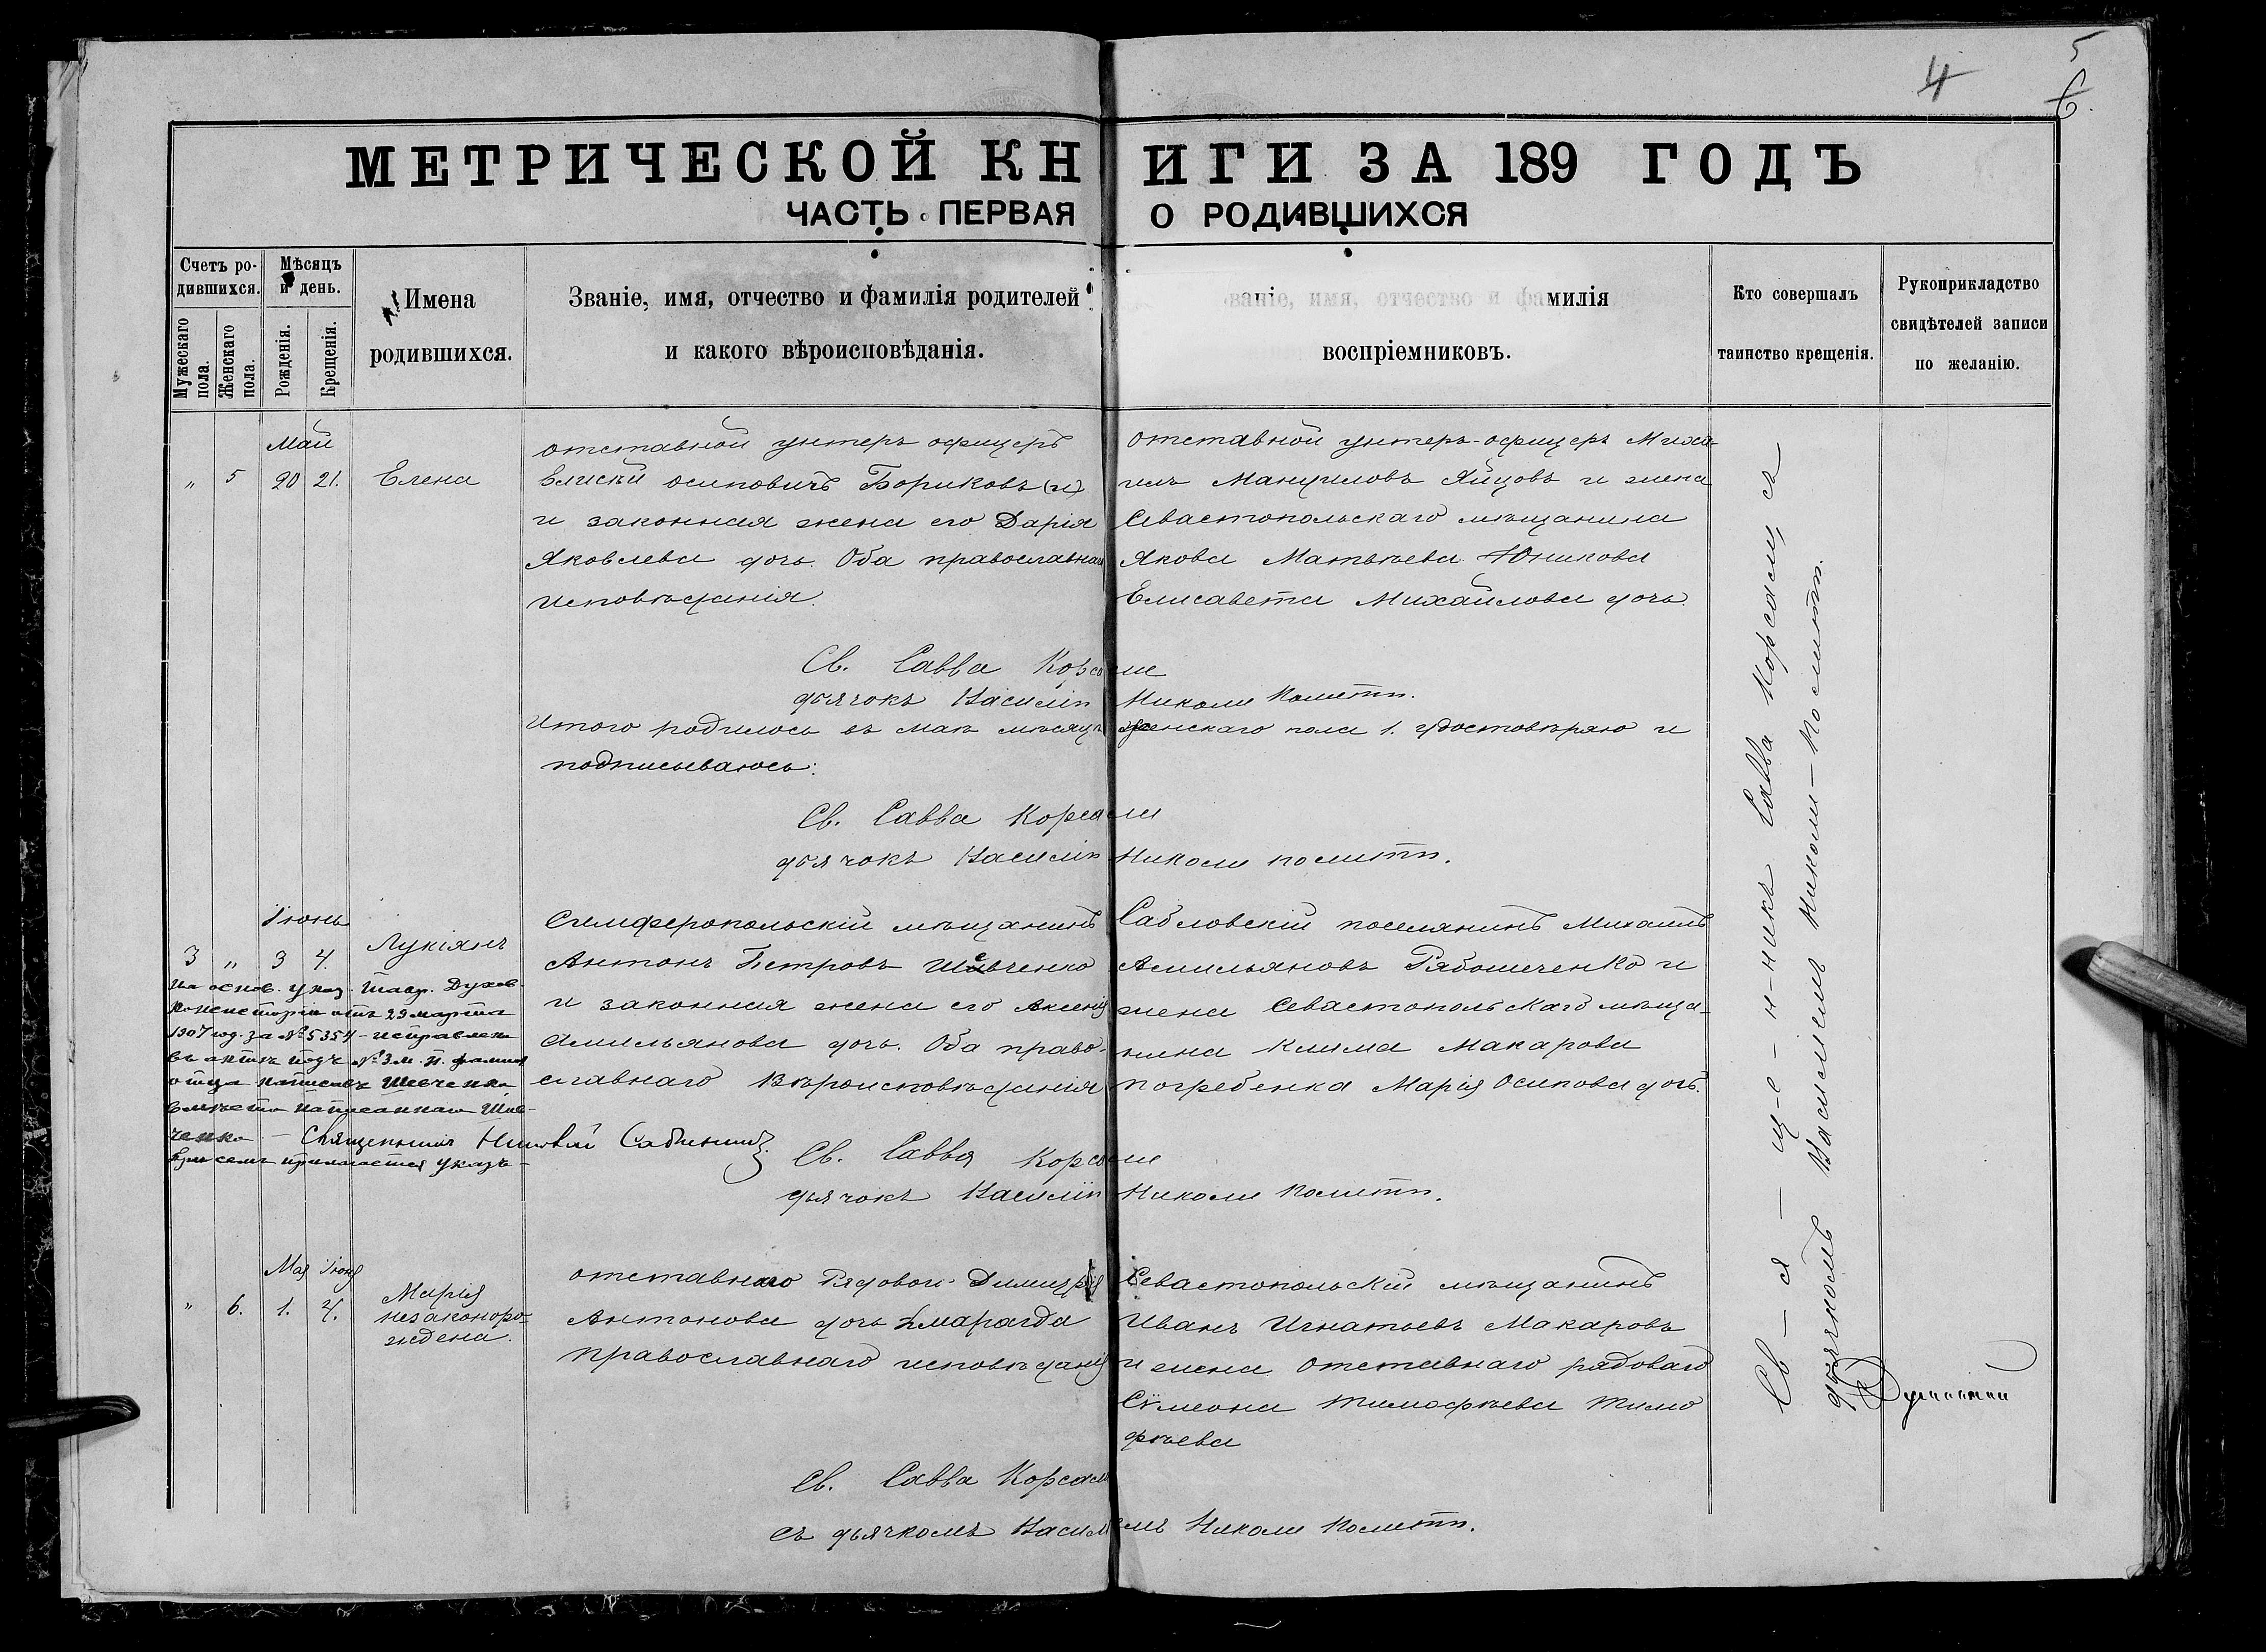 4
5
6.
МЕТРИЧЕСКОЙ КНИГИ ЗА 189 ГОДЪ
ЧАСТЬ ПЕРВАЯ О РОДИВШИХСЯ
Счетъ ро-
дившихся.
Мужескаго пола.
Женскаго пола.
Мѣсяцъ
и день.
Рожденія.
Крещенія.
Имена
родившихся.
Званіе, имя, отчество и фамилія родителей
и какого вѣроисповѣданія.
Званіе, имя, отчество и фамилія
воспріемниковъ.
Кто совершалъ
таинство крещенія.
Рукоприкладство
свидѣтелей записи
по желанію.
Май
„ 5 20 21. Елена
отставной унтеръ офицеръ
Елисѣй Осиповичъ Бориковъ (и)
и законная жена его Дарія
Яковлева дочь. Оба православнаг
исповѣданія.
отставной унтеръ-офицеръ Миха
илъ Яйцовъ и жена
Севастопольскаго мѣщанина
Якова Матвѣева Юникова
Елисавета Михайлова дочь.
Св. Савва Корсами
дьячокъ Василій Николи Политти.
Итого родилось въ маѣ мѣсяцѣ женскаго пола 1. удостовѣряю и
подписываюсь:
Св. Савва Корсами
дьячокъ Василій Николи Политти.
Іюнь
3 „ 3 4. Лукіянъ
Симферопольскій мѣщанинъ
Антонъ Петровъ Шевченко
и законная жена его Аксенія
Амильянова дочь. Оба право-
славнаго вѣроисповѣданія
Сабловскій поселянинъ Михаилъ
Амильяновъ Рябошеченко и
жена Севастопольскаго мѣща-
нина Клима Макарова
Погребенка Марія Осипова дочь.
На основ. указ. Тавр. Духов.
Консисторіи отъ 29 марта
1907 год. за № 5354 - исправлен
въ актѣ подъ № 3 м. п. фамил
отца написавъ Шевченко
вмѣсто написаннаго Шив-
ченко - Священникъ
При семъ прилагается указъ -
Св. Савва Корсами
дьячокъ Василій Николи Политти.
Мая Іюня
„ 6. 1. 4. Марія
незаконоро-
ждена.
отставнаго Рядовой Димитрія
Антонова дочь Смарагда
православнаго исповѣданія
Севастопольскій мѣщанинъ
Иванъ Игнатьевъ Макаровъ
и жена отставнаго рядоваго
Сѵмеона Тимофѣева Тимо
фѣева
Св. Савва Корсами
съ дьячкомъ Василіемъ Николи Политти.
Св - я - ще - н - никъ Савва Корсами съ
дьячкомъ Василіемъ Николи - Политти.